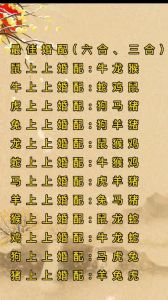 最佳婚配(六合、三合)
鼠上上婚配:牛龙猴
牛上上婚配:蛇鸡鼠
虎上上婚配:狗马猪
兔上上婚配:狗羊猪
龙上上婚配:鼠猴鸡
蛇上上婚配:牛猴鸡
马上上婚配:虎羊猪
羊上上婚配:兔马猪
猴上上婚配:鼠龙蛇
鸡上上婚配:牛龙蛇
狗上上婚配:马虎兔
猪上上婚配:羊兔虎